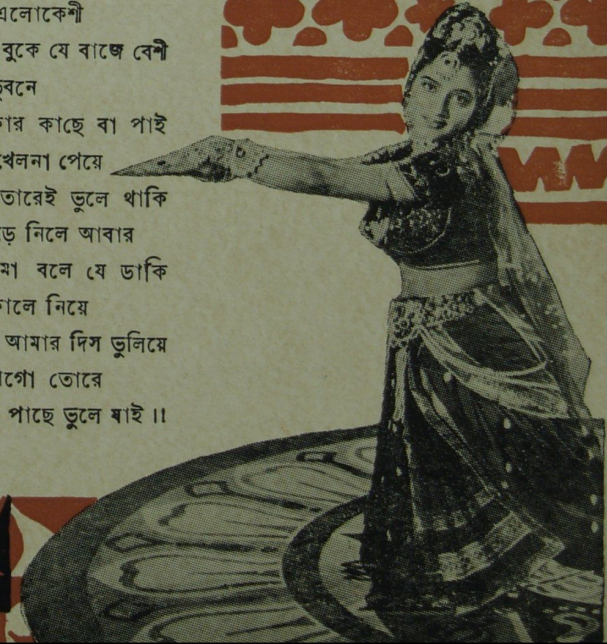 এলোকেশী
বুকে যে বাজে বেশী
ভুবনে
কার কাছে বা পাই
খেলনা পেয়ে
তোরেই ভুলে থাকি
নিলে আবার
মা বলে যে ডাকি
নিয়ে
আমার দিস ভুলিয়ে
মাগো তোরে
পাছে ভুলে যাই ৷৷